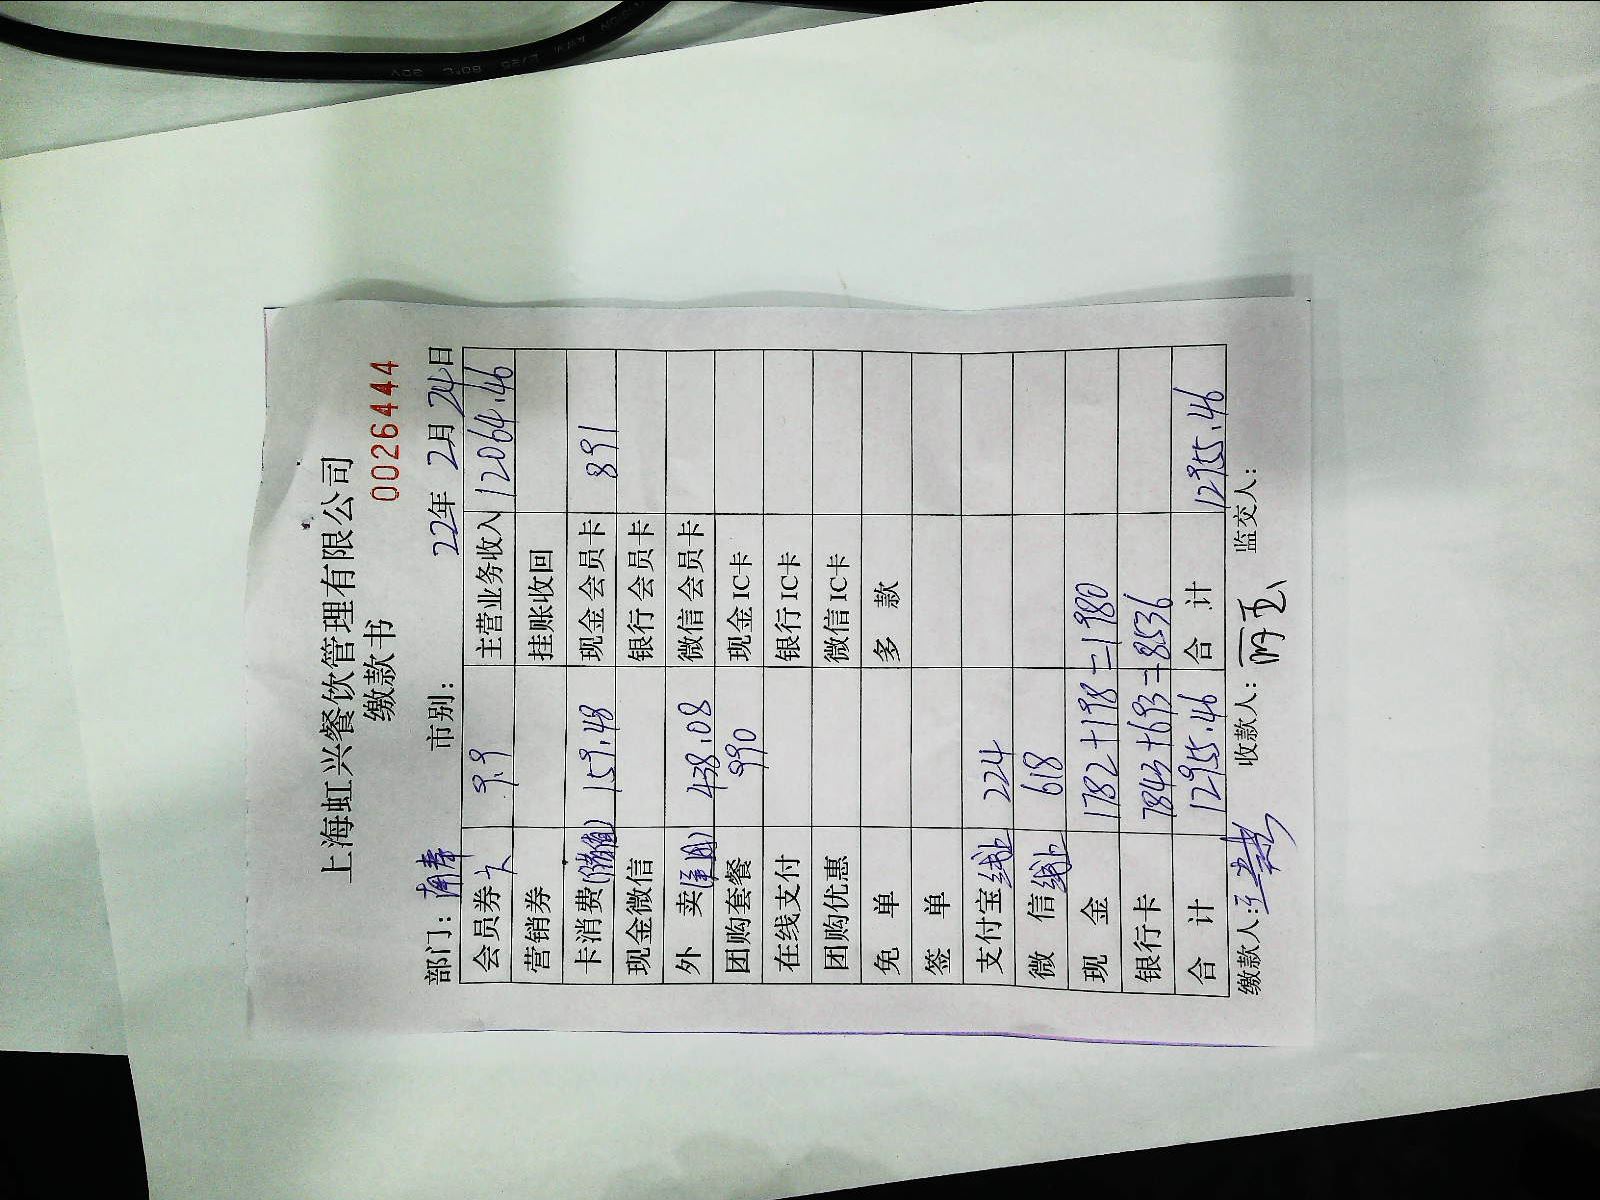 上海虹兴餐饮管理有限公司
缴款书
0026444
部门: 市别: 22年 2月 24日
会员券 9.9 主营业务收入 12064.46
营销券 挂账收回
卡消费(储值) 159.48 现金会员卡 891
现金微信 银行会员卡
外 卖 438.08 微信会员卡
团购套餐 990 现金IC卡
在线支付 银行IC卡
团购优惠 微信IC卡
免 单 多 款
签 单
支付宝 线上 224
微 信 线上 618
现 金 1782+198=1980
银行卡 7843+693=8536
合 计 12955.46 合 计 12955.46
缴款人: 收款人: 监交人: